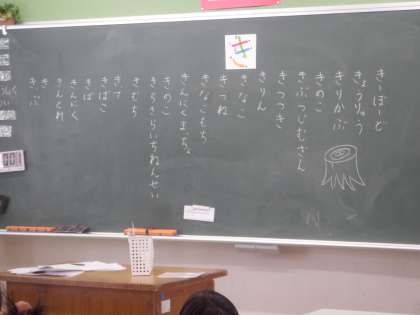 き
きーぼーど
きょうりゅう
きりかぶ
きのこ
きぶつじむざん
きつつき
きりん
きなこ
きつね
きなこもち
きんにくまっちょ
きのこ
きらきらいちねんせい
きむち
きって
きばこ
きば
きんにく
きんトレ
き
きっぷ